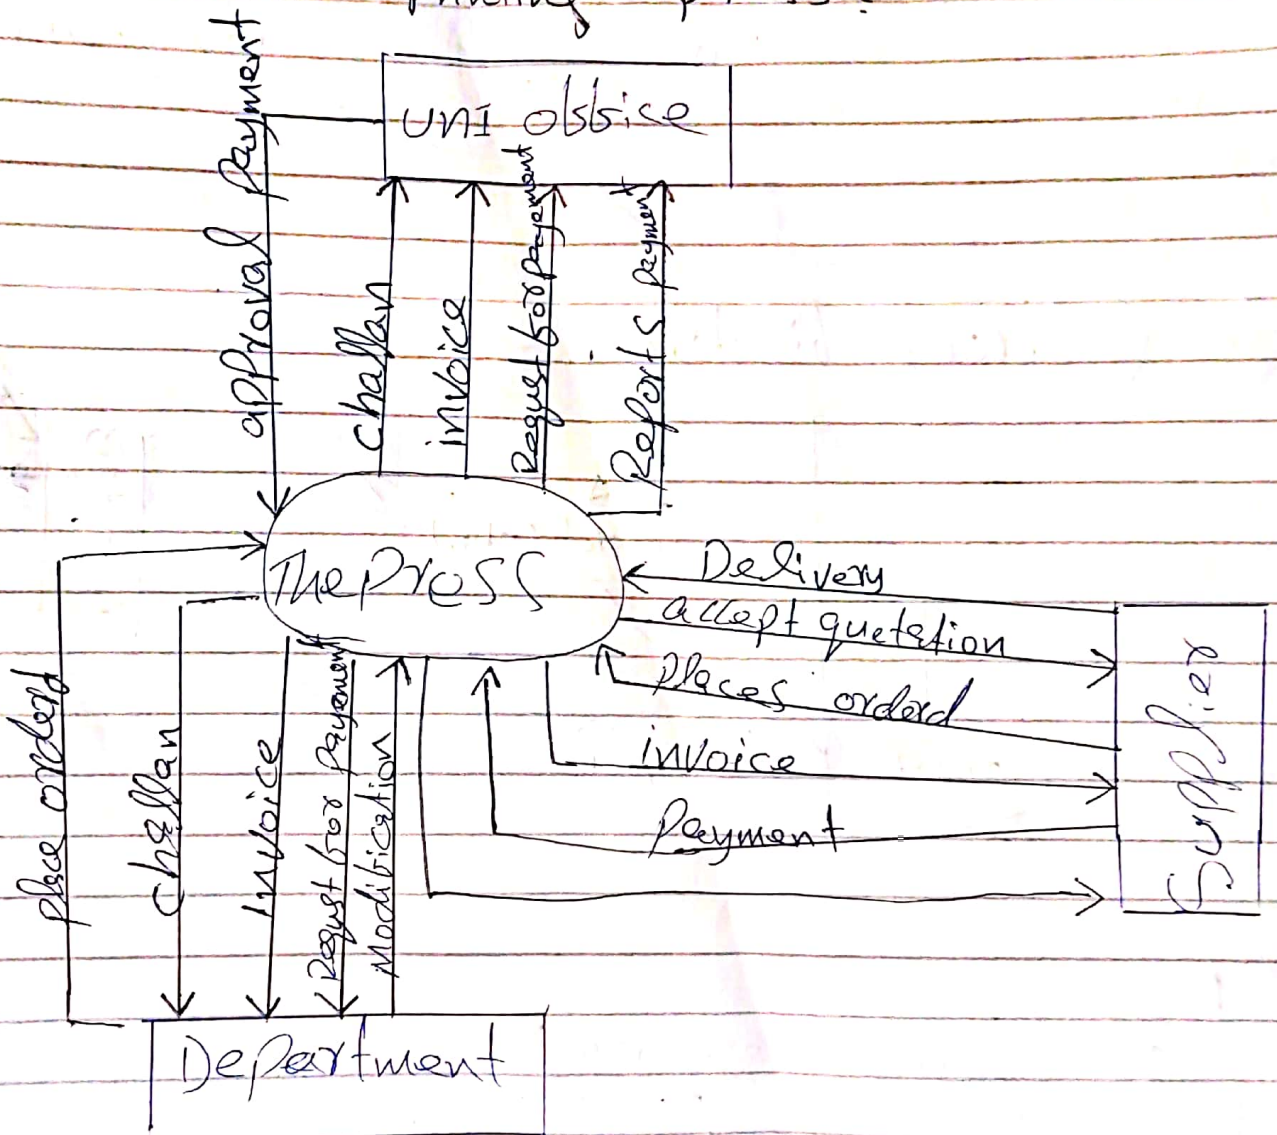 Printing
UNI office
approval Payment
challan
invoice
Request for payement
Reports payment
The Press
Delivery
accept quetetion
places orderd
invoice
Payment
Supplier
place orderd
challan
Invoice
Request for payement
Modification
Department